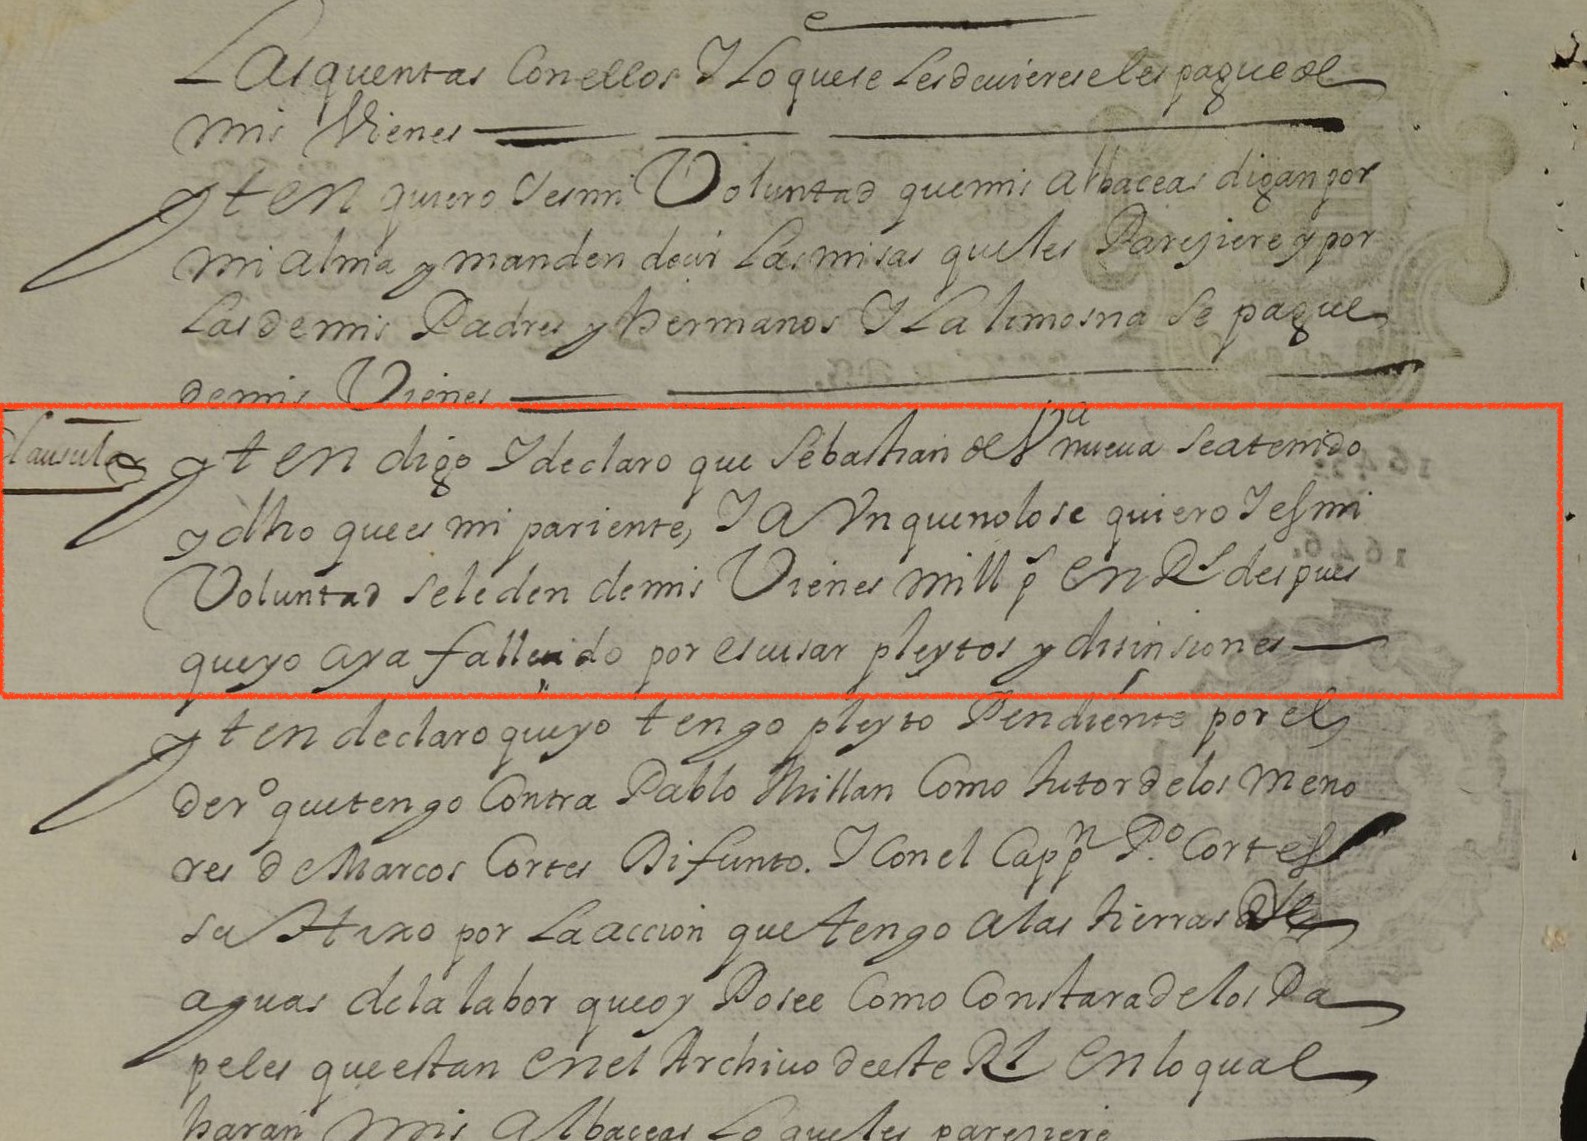 Las quentas Con ellos Y Lo que se Les deuiere se les pague de
mis Vienes
yten quiero Y es mi Voluntad que mis albaceas digan por
mi alma y manden decir Las misas que les Pareziere y por
Las de mis Padres y hermanos Y La limosna Se pague
de mis Vienes
Clausula
yten digo Y declaro que Sebastian de Vª nueua Se a tenido
y dho que es mi pariente, Y a Vnque no lo se quiero Y es mi
Voluntad Se le den de mis Vienes mill pˢ en Rˢ despues
que yo aya fallecido por escusar pleytos y disinsiones
yten declaro que yo tengo pleyto Pendiente por el
derº que tengo Contra Pablo Millan Como tutor de los Meno
res de Marcos Cortes Difunto. Y Con el Cappⁿ Pº Cortes
su Hixo por La accion que tengo a las tierras de
aguas de la labor que oy Posee Como Constara de los Pa
peles que estan en el Archiuo de este Rl en lo qual
haran mis albaceas Lo que les pareziere
1645
1646